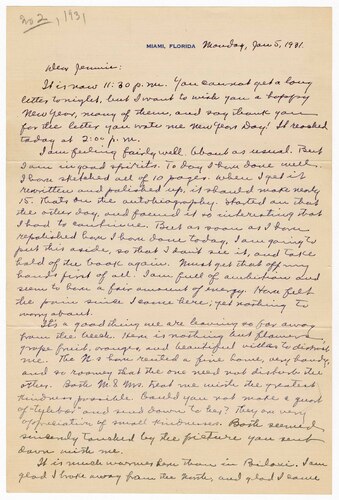 No 2, 1931
MIAMI, FLORIDA Monday, Jan 5, 1931.
Dear Jennie:
It is now 11:30 p.m. You cannot get a long
letter tonight, but I want to wish you a happy
New Year, many of them, and say thank you
for the letter you wrote me New Years Day! It reached
today at 2:00 p.m.
I am feeling fairly well. About as usual. But
I am in good spirits. Today I have done well.
I have sketched out 10 pages. When I get it
rewritten and polished up, it should make nearly
15. That's on the autobiography. Started on that
the other day, and found it so interesting that
I had to continue. But as soon as I have
repolished what I have done today, I am going to
put this aside, so that I can't see it, and take
hold of the book again. Must get that off my
hands first of all. I am full of ambition and
seem to have a fair amount of energy. Have felt
the pain since I came here, yet nothing to
worry about.
It's a good thing we are living so far away
from the beach. Here is nothing but flowers,
grape fruit, oranges, and beautiful villas to distract
me. The N's have rented a fine home, very handy,
and so roomy that the one need not disturb the
other. Both M & Mrs. treat me with the greatest
kindness possible. Could you not make a quart
of and send down to they? They are very
appreciative of small kindnesses. Both seemed
sincerely touched by the picture you sent
down with me.
It is much warmer here than in Biloxi. I am
glad I broke away from the North, and glad I came